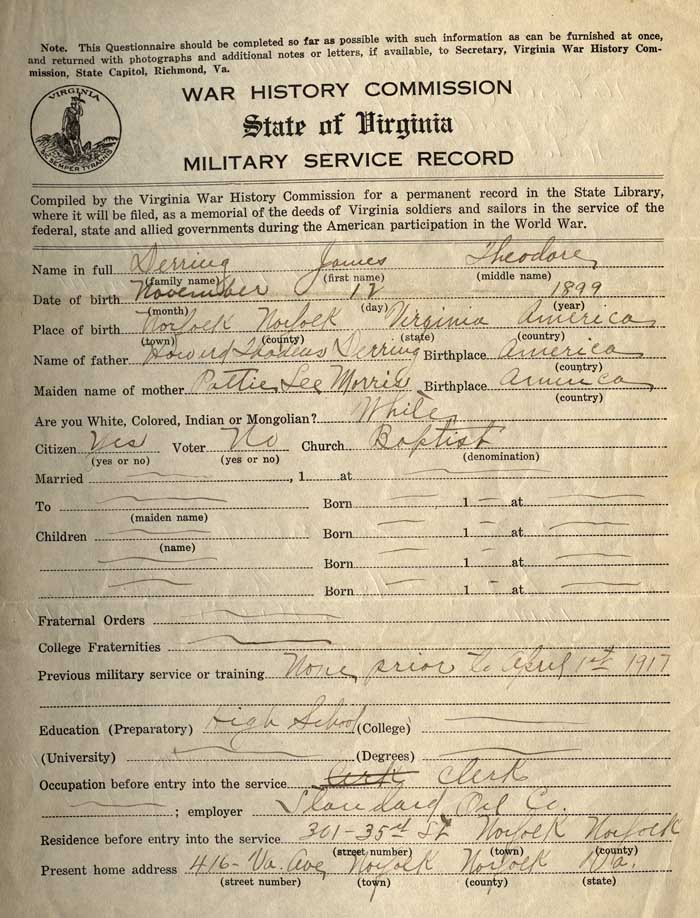 Note. This Questionnaire should be completed so far as possible with such information as can be furnished at once,
and returned with photographs and additional notes or letters, if available, to Secretary, Virginia War History Com-
mission, State Capitol, Richmond, Va.
VIRGINIA
SIC SEMPER TYRANNIS
WAR HISTORY COMMISSION
State of Virginia
MILITARY SERVICE RECORD
Compiled by the Virginia War History Commission for a permanent record in the State Library,
where it will be filed, as a memorial of the deeds of Virginia soldiers and sailors in the service of the
federal, state and allied governments during the American participation in the World War.
Name in full Derring James Theodore
(family name) (first name) (middle name)
Date of birth November 12 1899
(month) (day) (year)
Place of birth Norfolk Norfolk Virginia America
(town) (county) (state) (country)
Name of father Howerd Thadeus Derring Birthplace America
(country)
Maiden name of mother Pattie Lee Morris Birthplace America
(country)
Are you White, Colored, Indian or Mongolian? White
Citizen Yes Voter No Church Baptist
(yes or no) (yes or no) (denomination)
Married , 1 at
To Born 1 at
(maiden name)
Children Born 1 at
(name)
Born 1 at
Born 1 at
Fraternal Orders
College Fraternities
Previous military service or training None prior to April 1st 1917
Education (Preparatory) High School (College)
(University) (Degrees)
Occupation before entry into the service Clerk Clerk
; employer Standard Oil Co.
Residence before entry into the service 301-35rd St Norfolk Norfolk
(street number) (town) (county)
Present home address 416- Va. Ave Norfolk Norfolk Va.
(street number) (town) (county) (state)